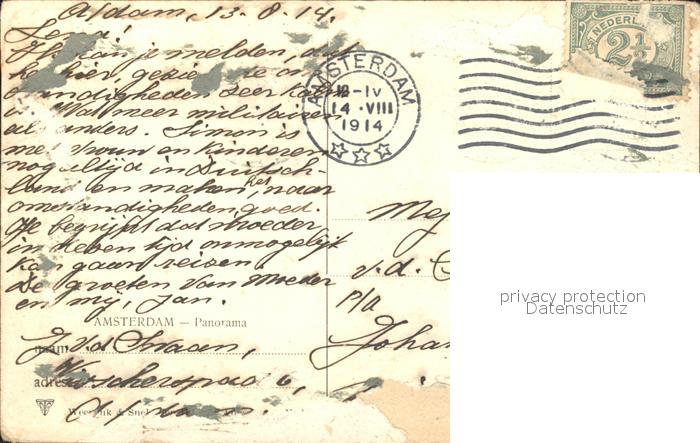 A/dam, 13-8-14.
Lena!
Ik kan je melden, dat
het hier, gezien de om
standigheden zeer kalm
is. Wat meer militairen
als anders. Simon is
met vrouw en kinderen
nog altijd in Duitsch-
land en maken het, naar
omstandigheden, goed.
Je begrijpt dat moeder
in dezen tijd onmogelijk
kan gaan reizen.
De groeten van Moeder
en mij, Jan.
AMSTERDAM — Panorama
naam J. v.d.
adres
Weenenk & Snel
AMSTERDAM
12-IV
14 ·VIII
1914
NEDERL
2½
Mej
v.d.
p/a
Joha
privacy protection
Datenschutz